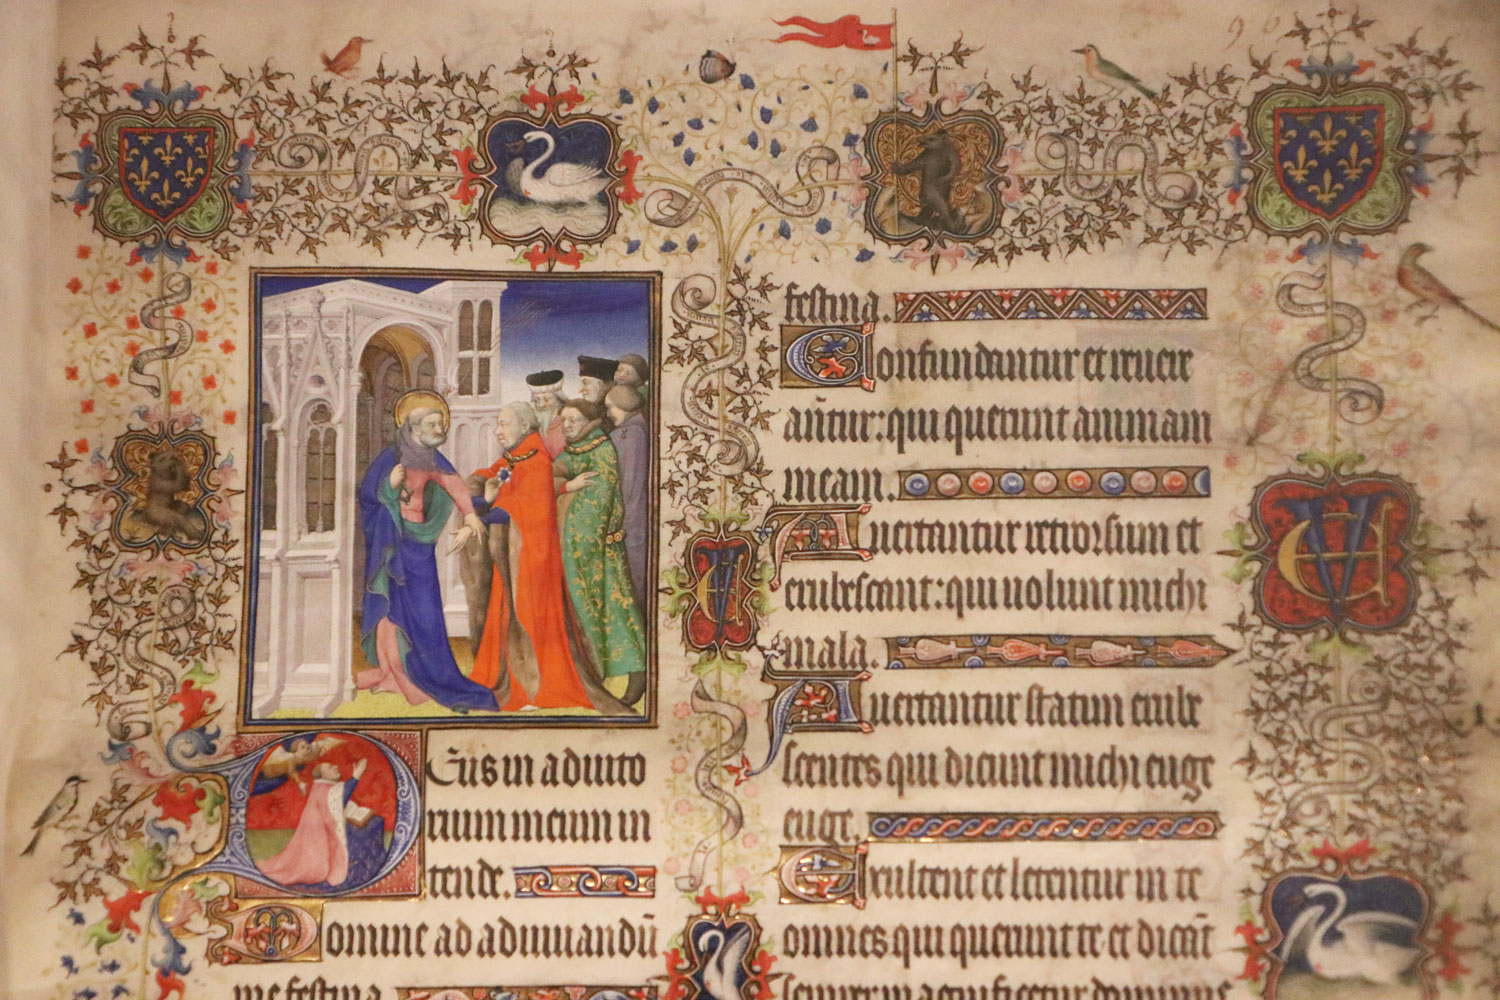 Deus in adiuto
rium meum in
tende.
Domine ad adiuuandū
me festina
festina.
Confundantur et reuere
ant̄ur: qui querunt animam
meam.
Auertantur retrorsum et
erubescant: qui uolunt michi
mala.
Auertantur statim erube
scentes qui dicunt michi euge
euge.
Exultent et letentur in te
omnes qui querunt te et dicāt
semper magnificetur dominus
VE
VE
90